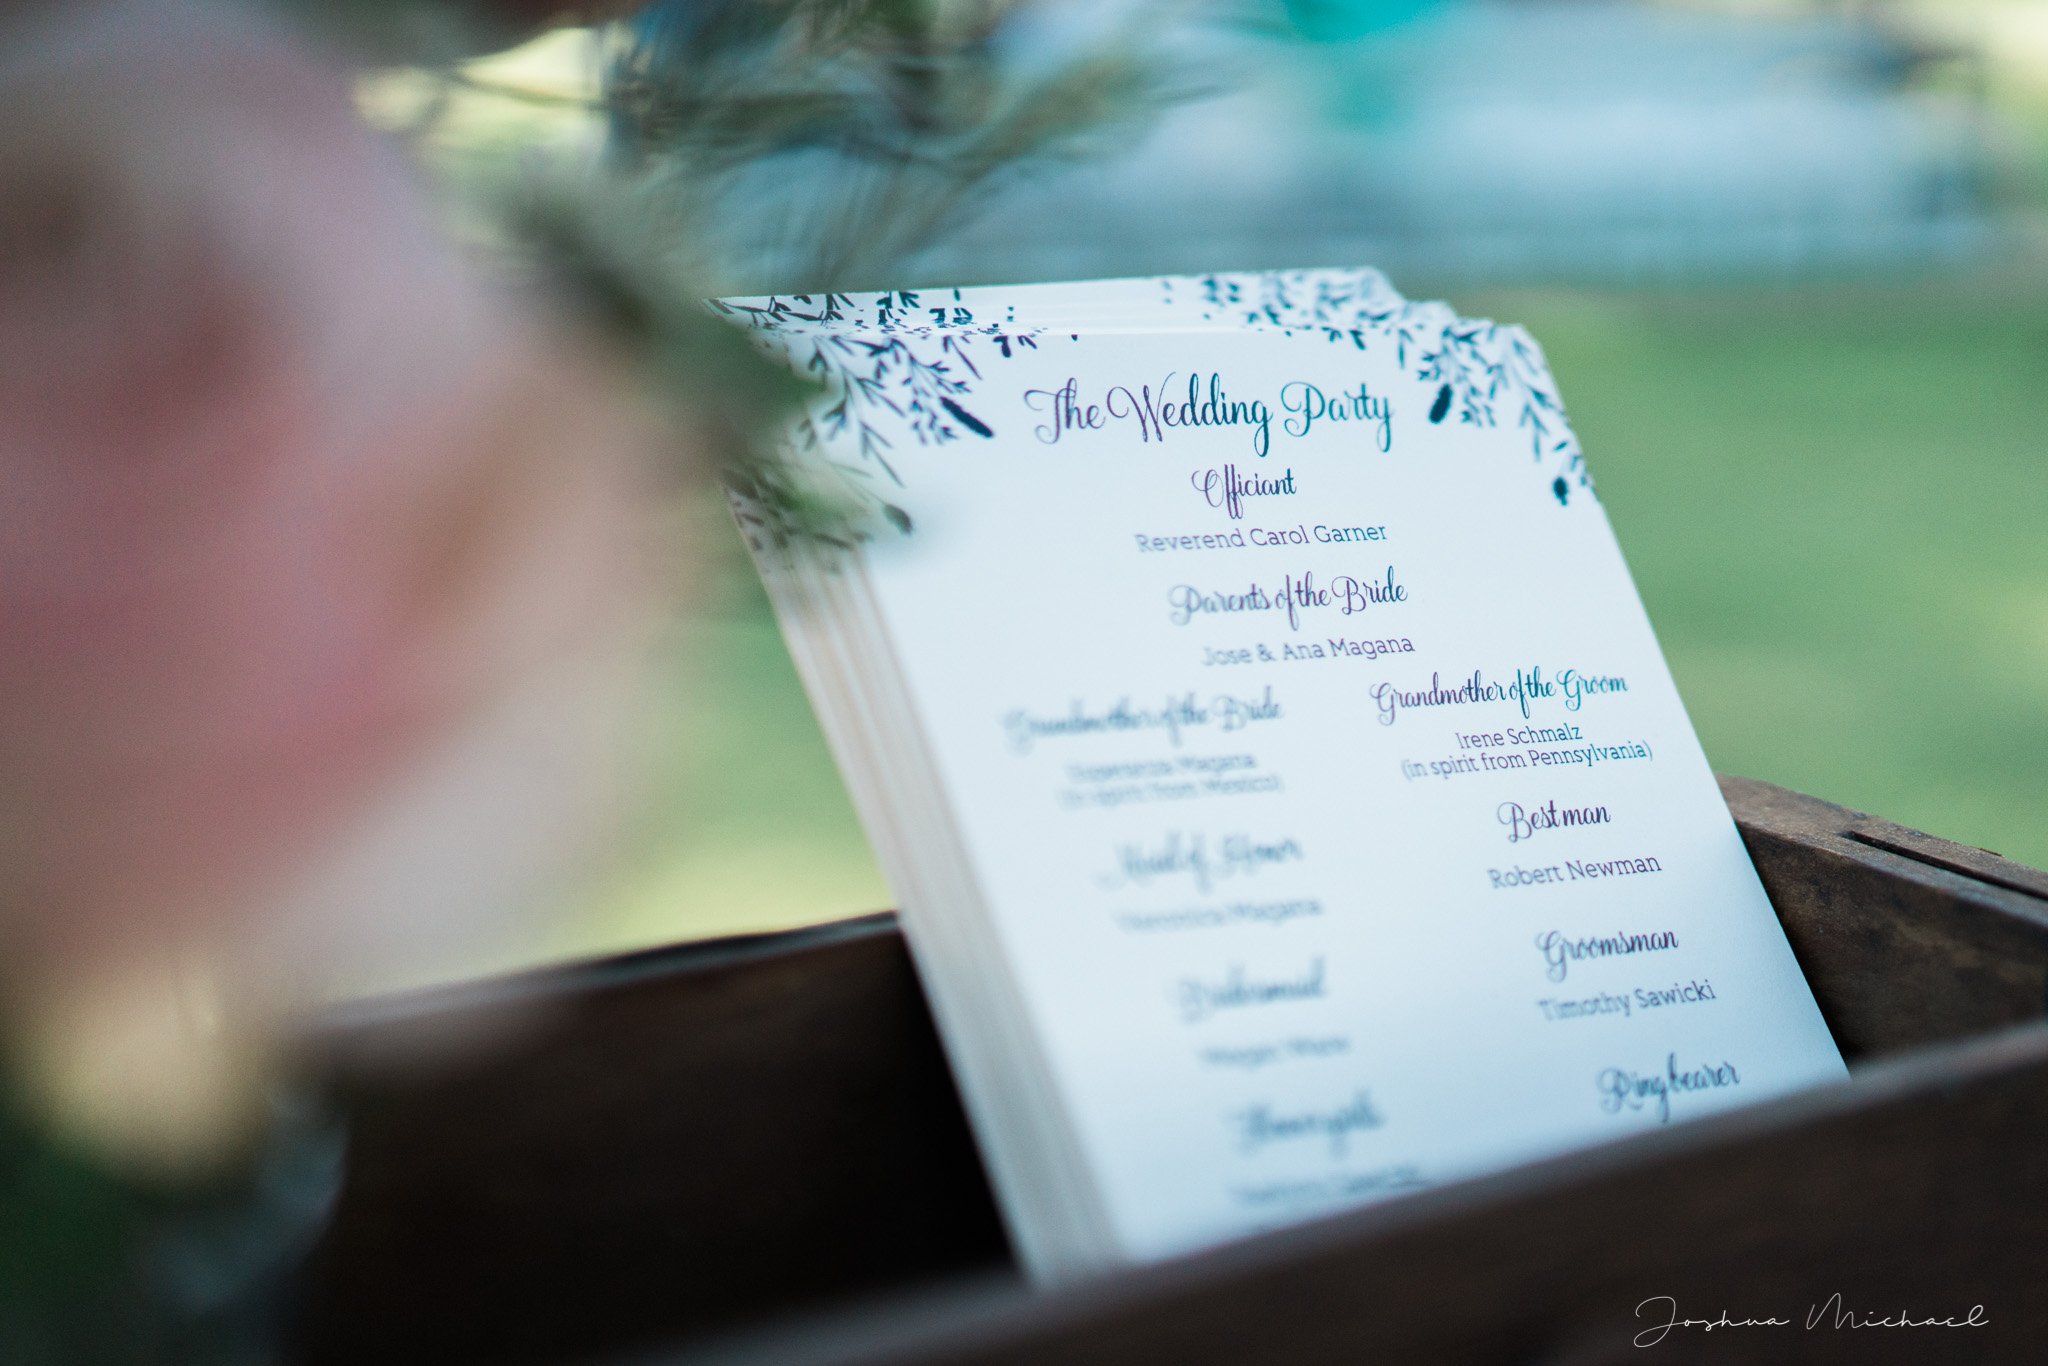 The Wedding Party
Officiant
Reverend Carol Garner
Parents of the Bride
Jose & Ana Magana
Grandmother of the Bride
Esperanza Magana
(in spirit from Mexico)
Maid of Honor
Veronica Magana
Bridesmaid
Grandmother of the Groom
Irene Schmalz
(in spirit from Pennsylvania)
Best man
Robert Newman
Groomsman
Timothy Sawicki
Ring bearer
Joshua Michael